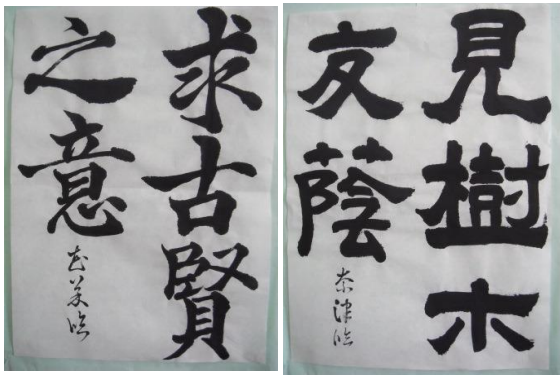 求古賢
之意
見樹木
交蔭
奈津臨